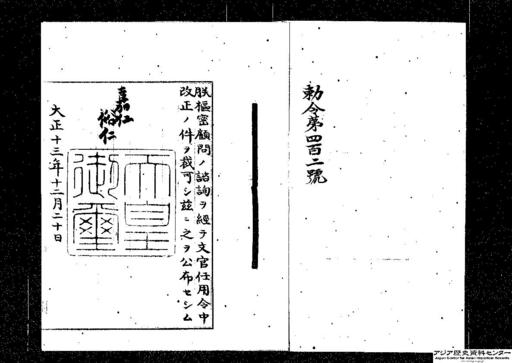 勅令第四百二號
朕樞密顧問ノ諮詢ヲ經テ文官任用令中
改正ノ件ヲ裁可シ茲ニ之ヲ公布セシム
嘉仁
裕仁
天皇
御璽
大正十三年十二月二十日
アジア歴史資料センター
Japan Center for Asian Historical Records